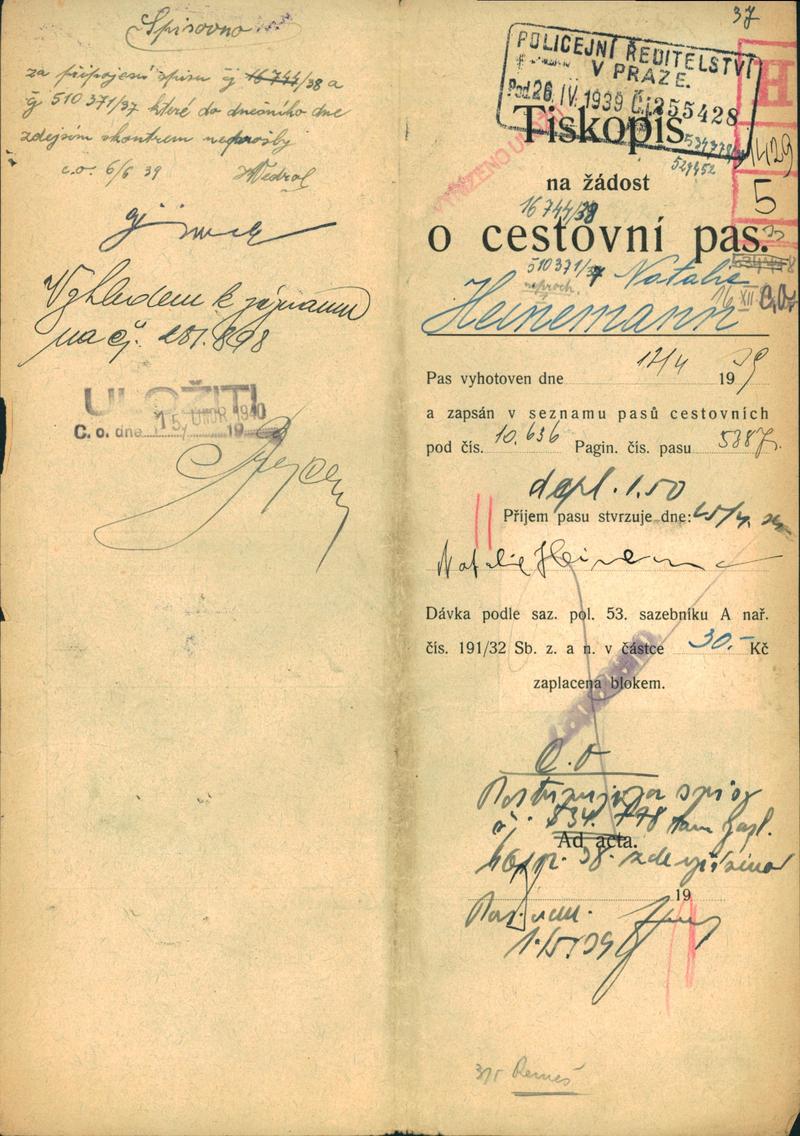 Spisovno
za připojení spisu čj 16744/38 a
čj 510371/37 které do dnešního dne
zdejším skontrem neprošly
c.o. 6/6 39
Vzhledem k záznamu
na čj. 281.898
ULOŽITI
C. o. dne 15. ÚNOR 1940 19
37
POLICEJNÍ ŘEDITELSTVÍ
V PRAZE.
Pod. 26. IV. 1939 Č.j. 255428
H
1429
5
534778/38
529452
Tiskopis
VYŘÍZENO
na žádost
16744/38
o cestovní pas.
510371/37 Natalie
neproch. 16 XII C.O.
Heinemann
Pas vyhotoven dne 12/4 1939
a zapsán v seznamu pasů cestovních
pod čís. 10.636 Pagin. čís. pasu 5387.
dopl. 1.50
Příjem pasu stvrzuje dne: 25/4.
Natalie Heinemann
Dávka podle saz. pol. 53. sazebníku A nař.
čís. 191/32 Sb. z. a n. v částce 30.- Kč
zaplacena blokem.
C.O
spisy
čj. 534.778
Ad acta.
38. zde
19
1./5. 39
315 Remeš